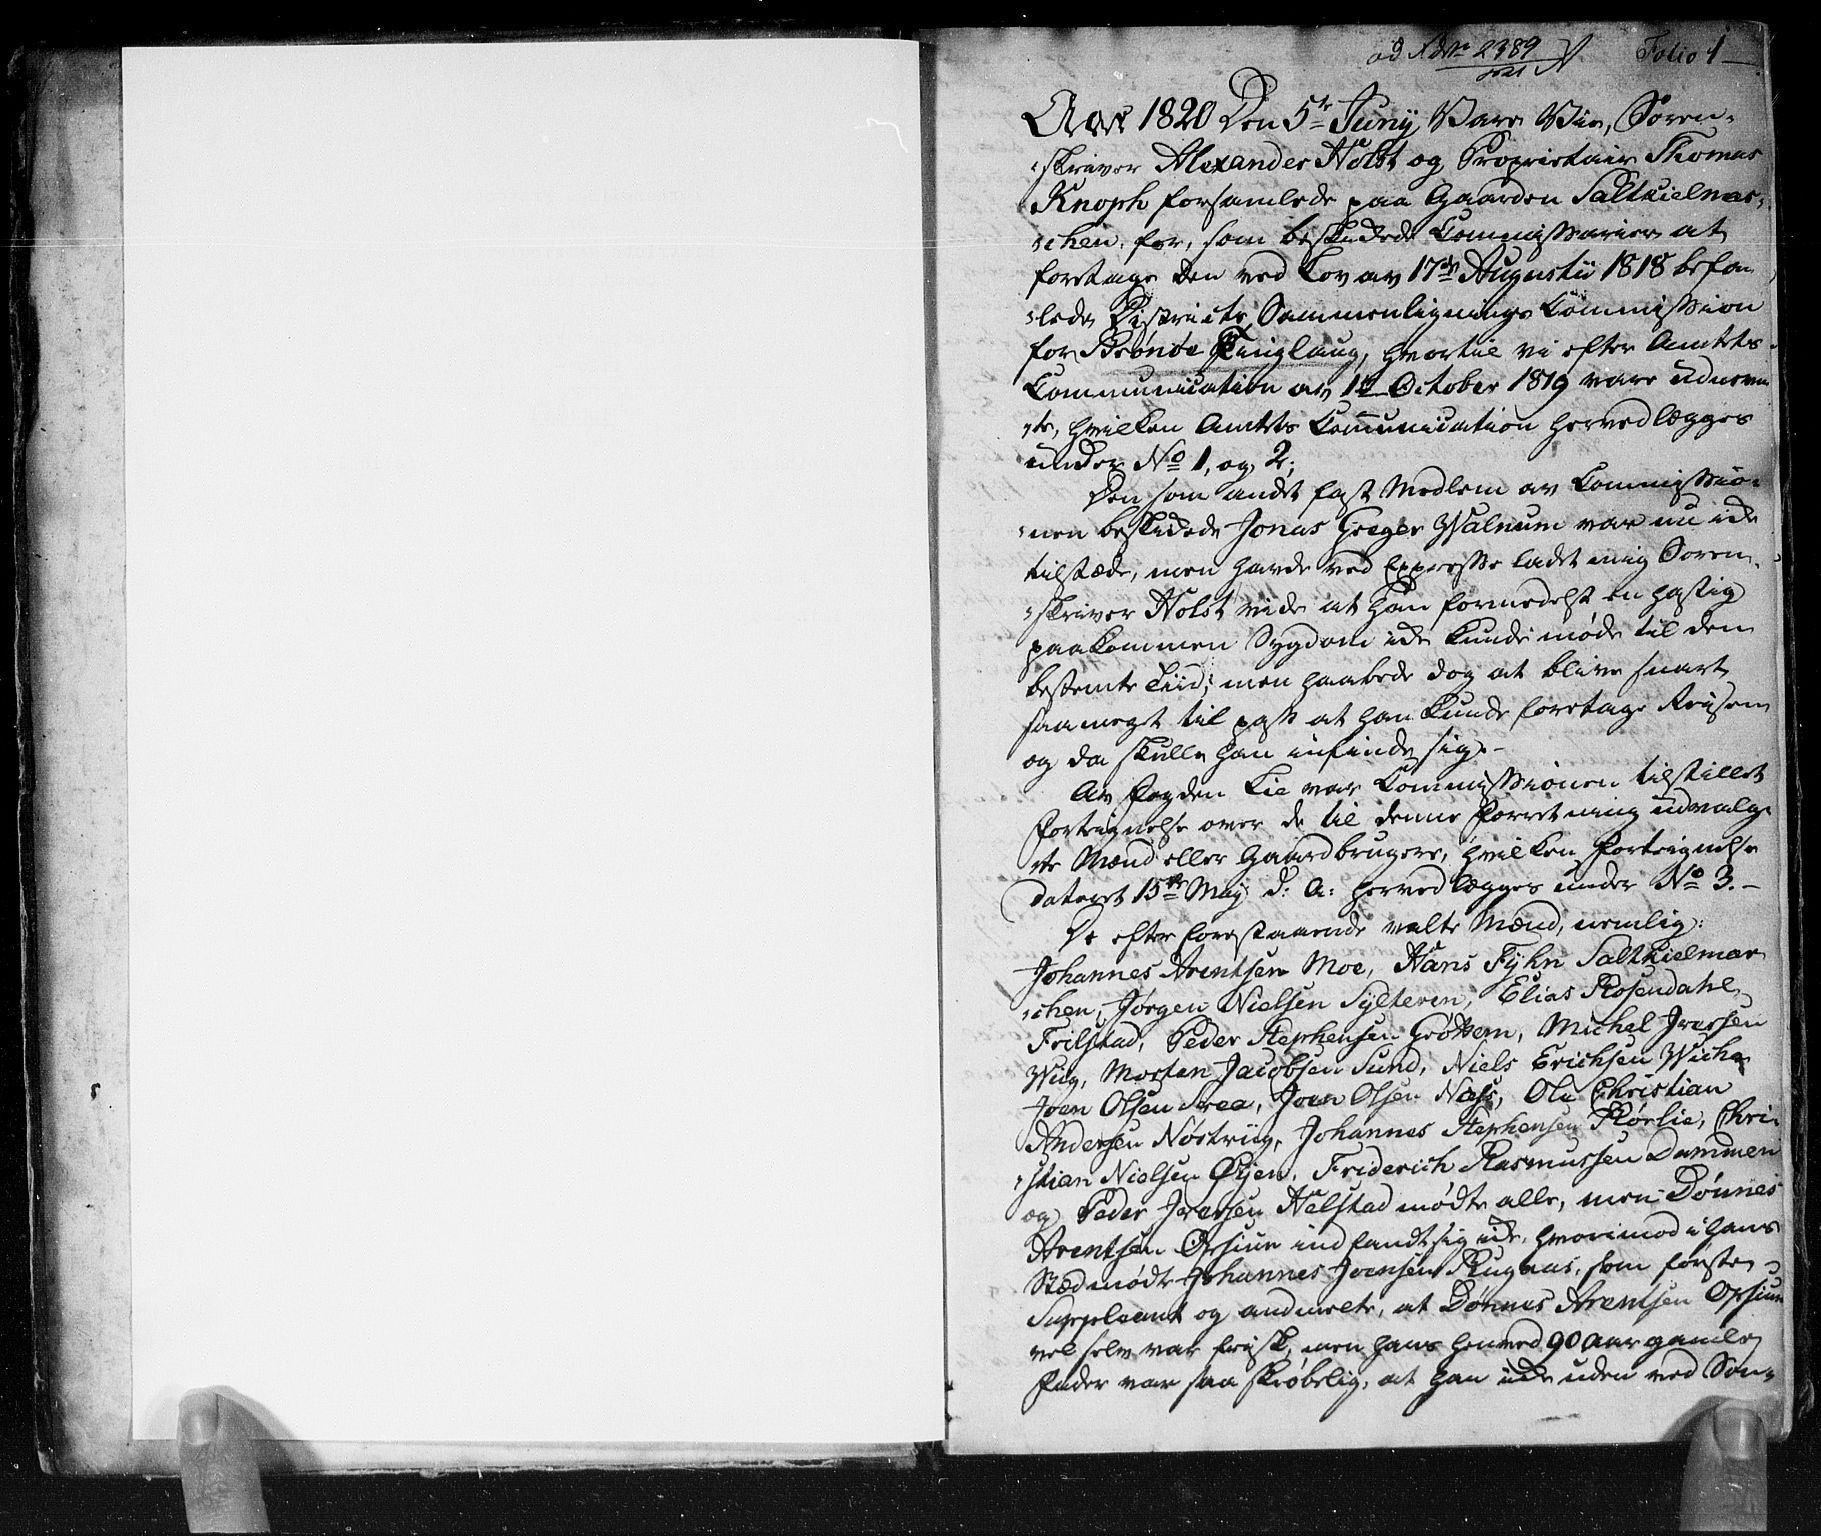 ad No 2389 Folio 1
1821
Aar 1820 Den 5te Junij Vare Vie, Soren-
skriver Alexander Holst og Proprietair Thomas
Knoph forsamlede paa Gaarden Saltkielnæs-
chen, for, som beskikkede Commissarier at
foretage den ved Lov av 17de Augustii 1818 befa-
lede Districts Sammenlignings Commission
for Brønøe Tinglaug, hvortil vi efter Amtets
Communication av 12 October 1819 vare udnevn-
te, hvilken Amtets Communication herved lægges
under No 1, og 2;
Den som andet fast Medlem av Commissio-
nen beskikede Jonas Greger Walnum var nu ikke
tilstæde, men havde ved Expresse ladet mig Soren-
skriver Holst vide at han formedelst en hastig
paakommen Sygdom ikke kunde møde til den
bestemte Tiid; men haabede dog at blive snart
saameget til pass at han kunde foretage Reisen
og da skulle han infinde sig.-
Av Fogden Lie var Commissionen tilstillet
Fortegnelse over de til denne Forretning udvalg-
te Mænd eller Gaardbrugere, hvilken Fortegnelse
dateret 15de Maij d: A: herved lægges under No 3.-
De efter forestaaende valte Mænd, nemlig:
Johannes Arentsen Moe, Hans Fyhn Saltkielnæs-
chen, Jørgen Nielsen Sylteren, Elias Rosendahl
Frilstad, Peder Stephensen Grøttem, Michel Iversen
Wiig, Morten Jacobsen Sund, Niels Erichsen Wicha
Joen Olsen Sree, Joen Olsen Næss, Ole Christian
Andersen Nøstviig, Johannes Stephensen Rørlie, Chri-
stian Nielsen Øijen, Friderich Rasmussen Dammen
og Peder Iversen Helstad mødte alle, men Dønnes
Arentsen Opsiun indfandt sig ikke, hvorimod i hans
Stæd mødte Johannes Joensen Rugaas, som første
Suppleant og anmelte, at Dønnes Arentsen Opsiun
vel selv var frisk, men hans henved 90 Aar gamle
Fader var saa skrøbelig, at han ikke uden ved Søn-